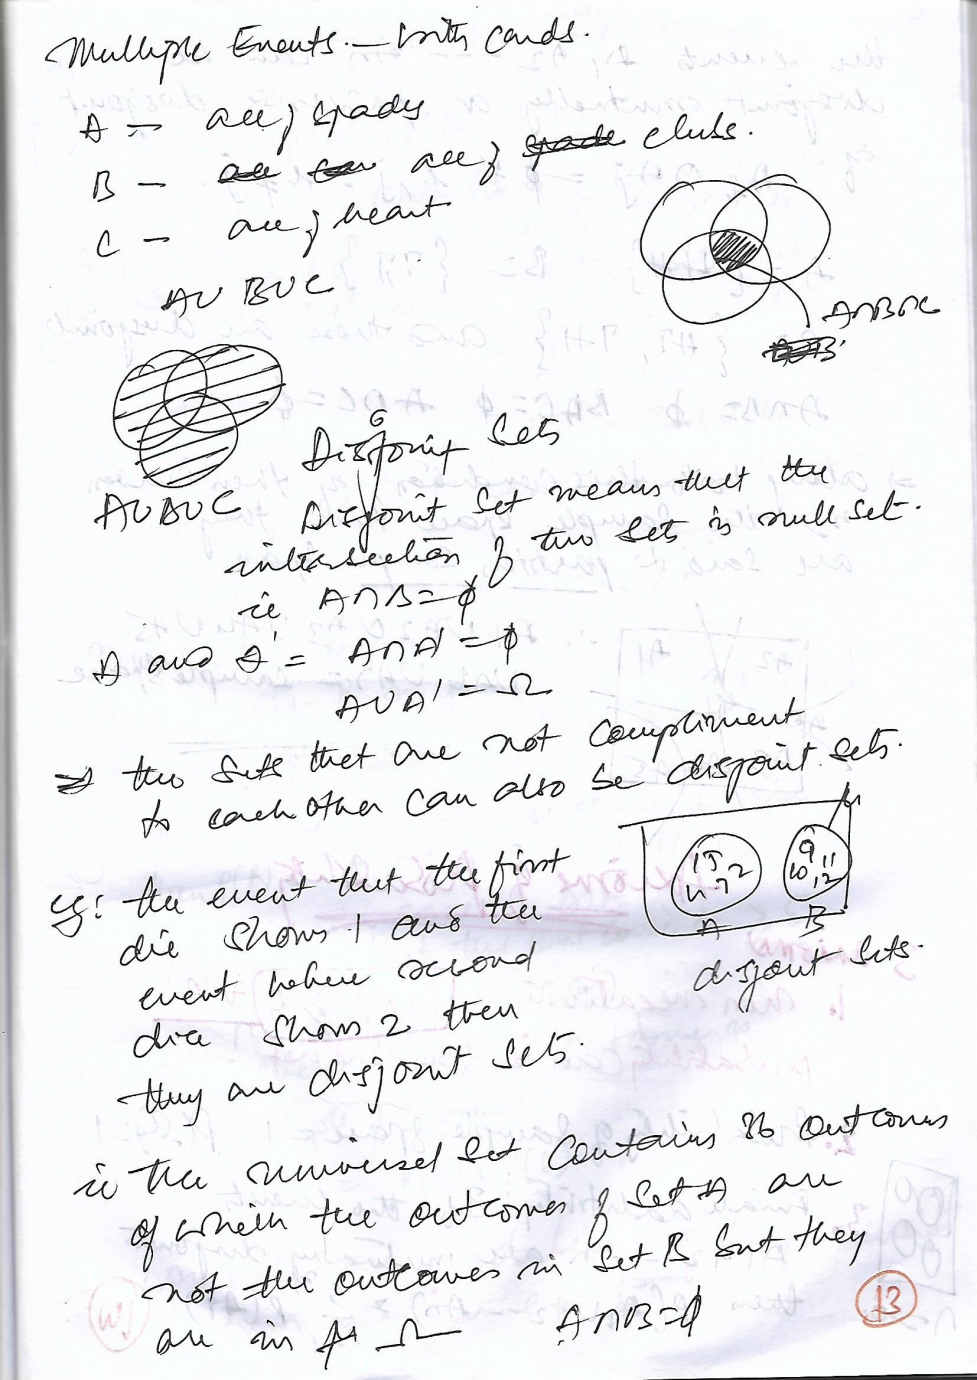 Multiple Events. — with cards.
A — all of spades
B — all of clubs.
C — all of heart
AUBUC
A∩B∩C
AUBUC
Disjoint Sets
Disjoint Set means that the
intersection of two sets is null set.
ie A∩B=ϕ
A and A' = A∩A' = ϕ
AUA' = Ω
⇒ two sets that are not compliment
to each other can also be disjoint sets.
eg: the event that the first
die shows 1 and the
event where second
dice shows 2 then
they are disjoint sets.
9
10 11
12
A B
disjoint sets.
ie the universel set contains 36 outcomes
of which the outcomes of set A are
not the outcomes in set B but they
are in Ω A∩B=ϕ
13